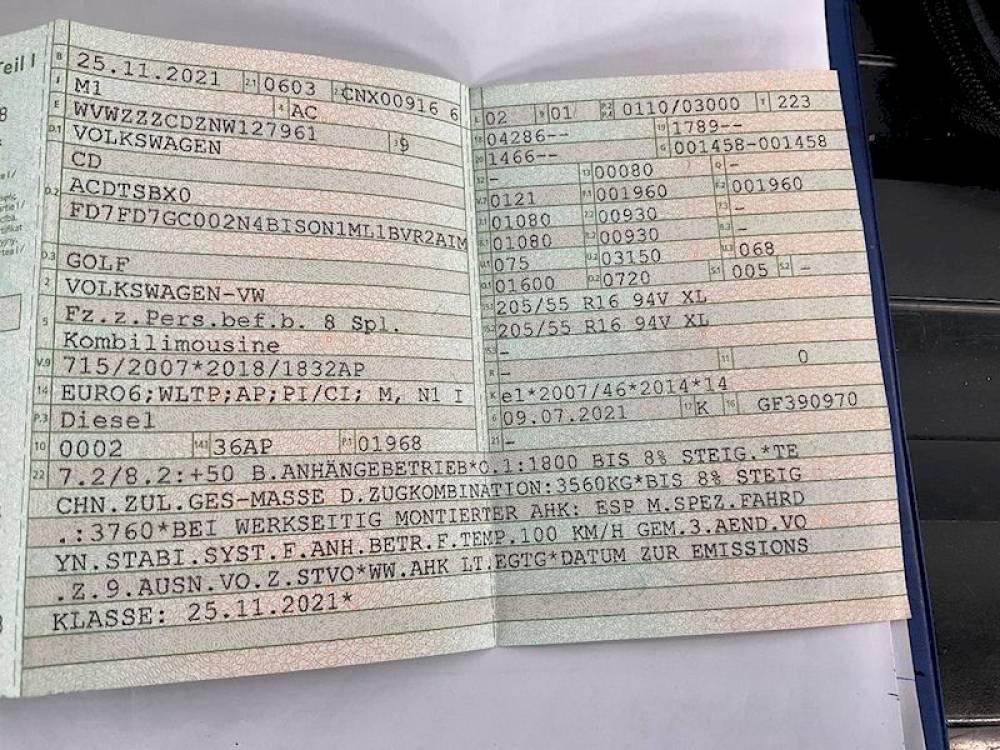 Teil I
B 25.11.2021 2.1 0603 2.2 CNX00916 6
J M1 4 AC
E WVWZZZCDZNW127961 3 9
D.1 VOLKSWAGEN
CD
D.2 ACDTSBX0
FD7FD7GC002N4BISON1ML1BVR2AIM
D.3 GOLF
2 VOLKSWAGEN-VW
5 Fz.z.Pers.bef.b. 8 Spl.
Kombilimousine
V.9 715/2007*2018/1832AP
14 EURO6;WLTP;AP;PI/CI; M, N1 I
P.3 Diesel
10 0002 14.1 36AP P.1 01968
L 02 9 01 P.2 P.4 0110/03000 T 223
18 04286-- 19 1789--
20 1466-- G 001458-001458
12 - 13 00080 Q -
V.7 0121 F.1 001960 F.2 001960
7.1 01080 7.2 00930 7.3 -
8.1 01080 8.2 00930 8.3 -
U.1 075 U.2 03150 U.3 068
O.1 01600 O.2 0720 S.1 005 S.2 -
15.1 205/55 R16 94V XL
15.2 205/55 R16 94V XL
15.3 -
R - 11 0
K e1*2007/46*2014*14
6 09.07.2021 17 K 16 GF390970
21 -
22 7.2/8.2:+50 B.ANHÄNGEBETRIEB*O.1:1800 BIS 8% STEIG.*TE
CHN.ZUL.GES-MASSE D.ZUGKOMBINATION:3560KG*BIS 8% STEIG
.:3760*BEI WERKSEITIG MONTIERTER AHK: ESP M.SPEZ.FAHRD
YN.STABI.SYST.F.ANH.BETR.F.TEMP.100 KM/H GEM.3.AEND.VO
.Z.9.AUSN.VO.Z.STVO*WW.AHK LT.EGTG*DATUM ZUR EMISSIONS
KLASSE: 25.11.2021*